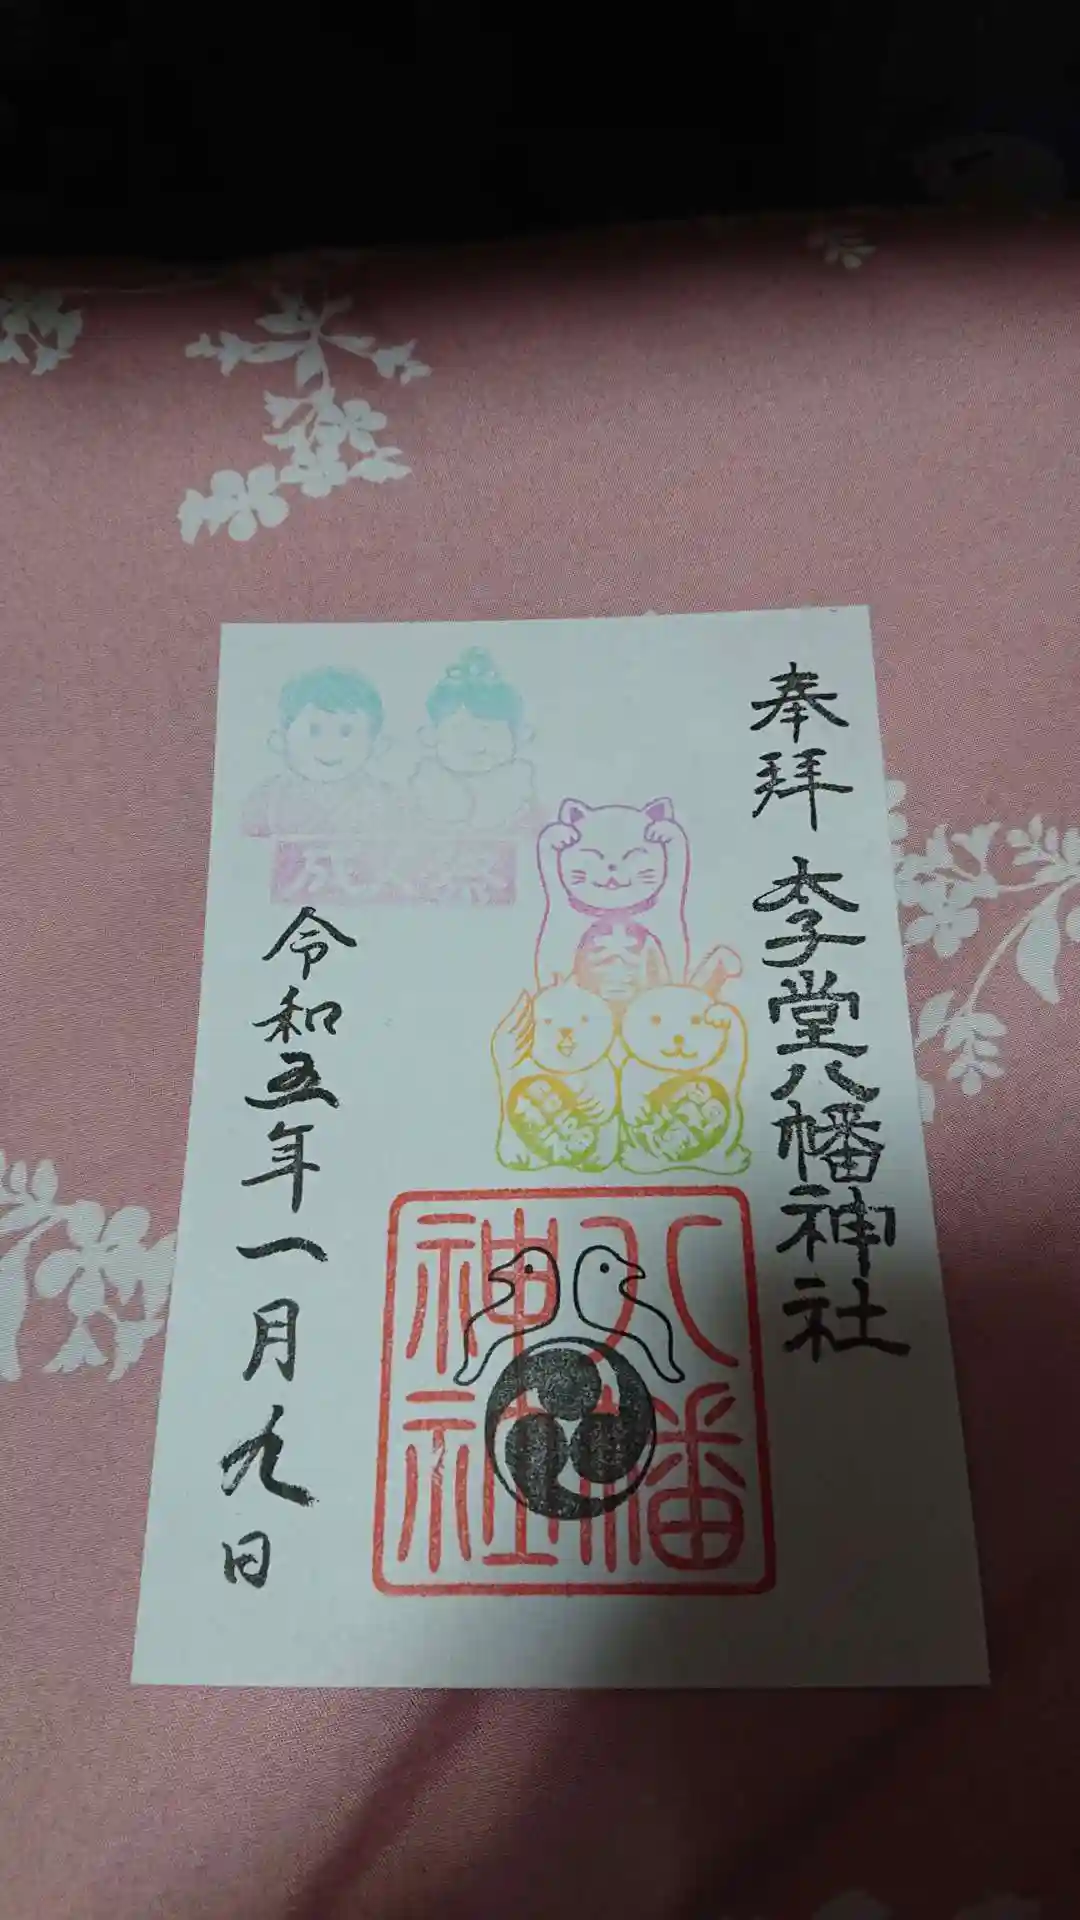 奉拝 太子堂八幡神社
八幡
神社
成人祭
令和五年一月九日